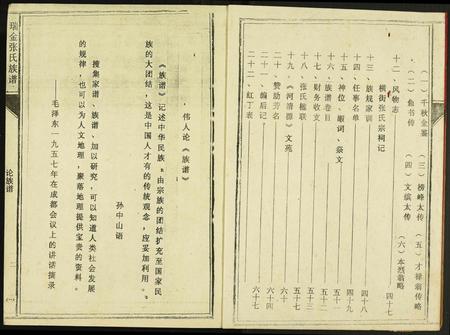 (一)千秋金鉴 (三)榜峰太传 (五)才禄翁传略
(二)鱼书传 (四)文缤太传 (六)本烈翁略
十二、风物志
横街张氏宗祠记 四十七
十三、族规家训 四十八
十四、任事名单 四十九
十五、神位、嘏词、祭文 五十一
十六、族谱卷目 五十二
十七、财务收支 五十三
十八、张氏楹联 五十四
十九、《河清源》文苑
二十、赞助芳名 六十四
二十一、编后记 六十六
二十二、红丁表 六十七
瑞金张氏族谱
论族谱
伟人论《族谱》
《族谱》记述中华民族，由宗族的团结扩充至国家民
族的大团结，这是中国人才有的传统观念，应妥加利用。
孙中山语
搜集家谱、族谱、加以研究，可以知道人类社会发展
的规律，也可以为人文地理，聚落地理提供宝贵的资料。
——毛泽东一九五七年在成都会议上的讲话摘录